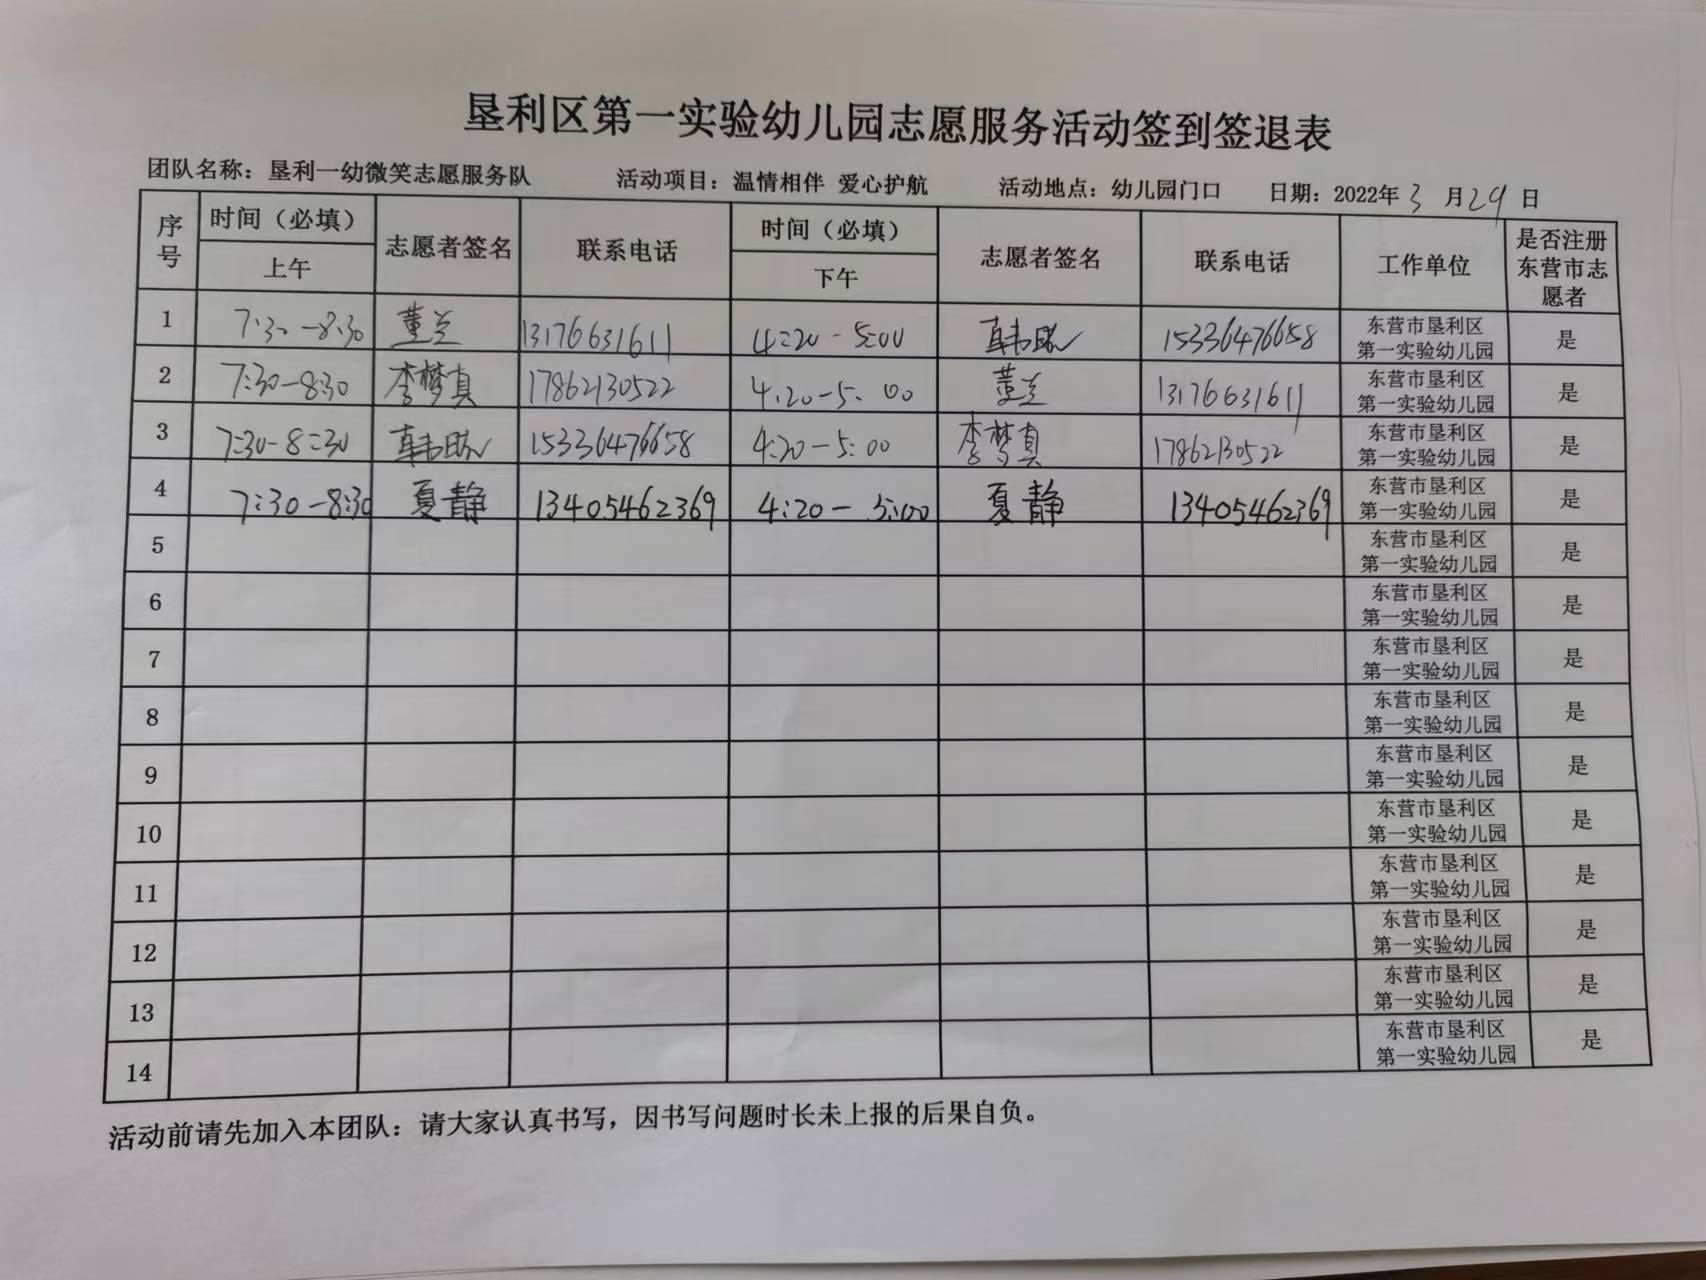 垦利区第一实验幼儿园志愿服务活动签到签退表
团队名称：垦利一幼微笑志愿服务队 活动项目：温情相伴 爱心护航 活动地点：幼儿园门口 日期：2022年3月29日
序号 时间（必填） 上午 志愿者签名 联系电话 时间（必填） 下午 志愿者签名 联系电话 工作单位 是否注册东营市志愿者
1 7:30-8:30 董兰 13176631611 4:20-5:00 15336476658 东营市垦利区第一实验幼儿园 是
2 7:30-8:30 李梦真 17862130522 4:20-5:00 董兰 13176631611 东营市垦利区第一实验幼儿园 是
3 7:30-8:30 15336476658 4:20-5:00 李梦真 17862130522 东营市垦利区第一实验幼儿园 是
4 7:30-8:30 夏静 13405462369 4:20-5:00 夏静 13405462369 东营市垦利区第一实验幼儿园 是
5 东营市垦利区第一实验幼儿园 是
6 东营市垦利区第一实验幼儿园 是
7 东营市垦利区第一实验幼儿园 是
8 东营市垦利区第一实验幼儿园 是
9 东营市垦利区第一实验幼儿园 是
10 东营市垦利区第一实验幼儿园 是
11 东营市垦利区第一实验幼儿园 是
12 东营市垦利区第一实验幼儿园 是
13 东营市垦利区第一实验幼儿园 是
14 东营市垦利区第一实验幼儿园 是
活动前请先加入本团队：请大家认真书写，因书写问题时长未上报的后果自负。